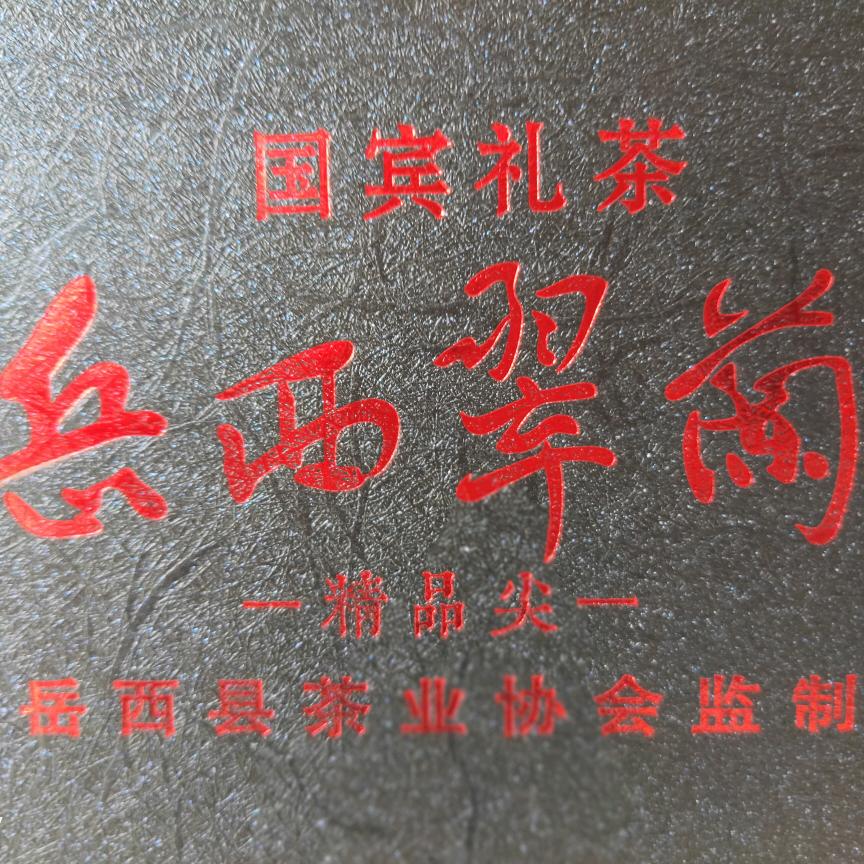 国宾礼茶
岳西翠蘭
一精品尖一
岳西县茶业协会监制